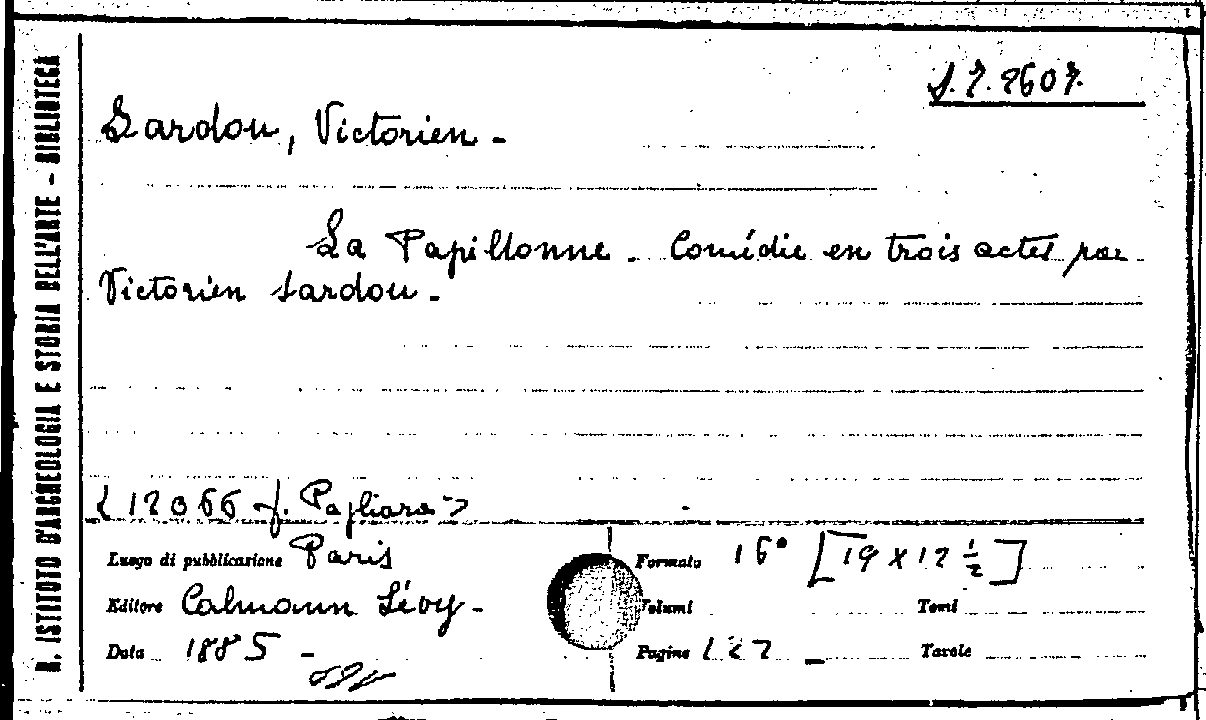 R. ISTITUTO D'ARCHEOLOGIA E STORIA DELL'ARTE - BIBLIOTECA
Sardou, Victorien -
La Papillonne. Comédie en trois actes par
Victorien Sardou -
12066 f. Pagliara
Luogo di pubblicazione Paris
Formato 16° [19 x 12 ½]
Editore Calmann Lévy -
Volumi
Tomi
Data 1885 -
Pagine
Tavole